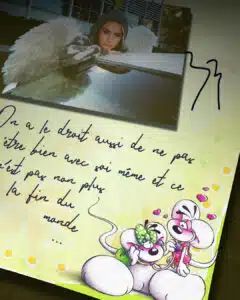 On a le droit aussi de ne pas
être bien avec soi même et ce
c'est pas non plus
la fin du
monde
...